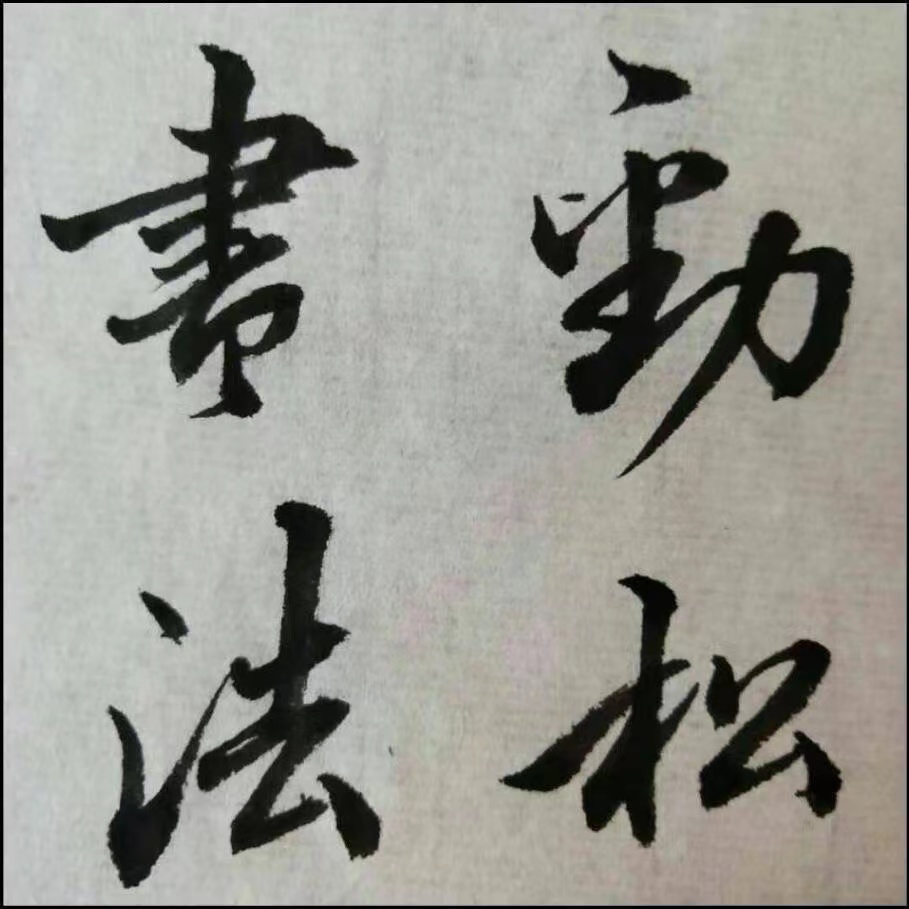 勁松
書法